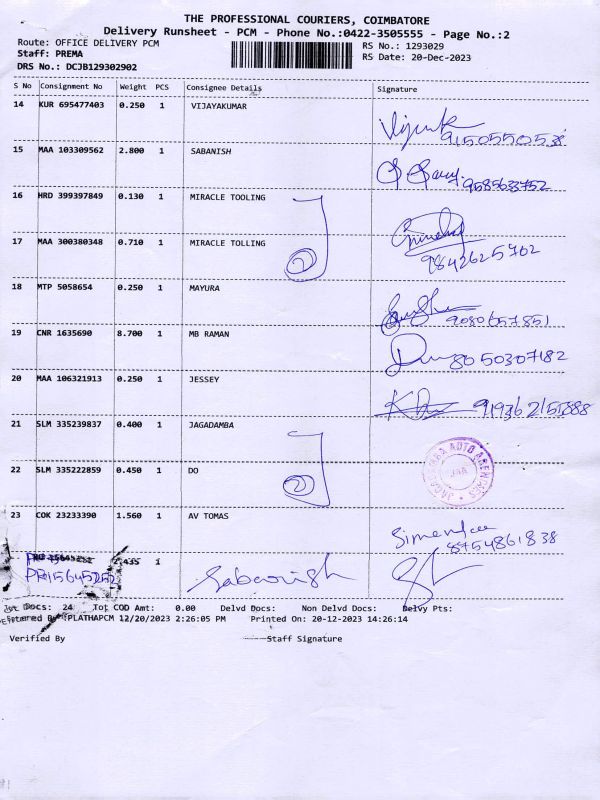 THE PROFESSIONAL COURIERS, COIMBATORE
Delivery Runsheet - PCM - Phone No.:0422-3505555 - Page No.:2
Route: OFFICE DELIVERY PCM
RS No.: 1293029
Staff: PREMA
RS Date: 20-Dec-2023
DRS No.: DCJB129302902
S No Consignment No Weight PCS Consignee Details Signature
14 KUR 695477403 0.250 1 VIJAYAKUMAR
9150550538
15 MAA 103309562 2.800 1 SABANISH
9585633752
16 HRD 399397849 0.130 1 MIRACLE TOOLING
17 MAA 300380348 0.710 1 MIRACLE TOLLING
9842625702
18 MTP 5058654 0.250 1 MAYURA
9080657851
19 CNR 1635690 8.700 1 MB RAMAN
8050307182
20 MAA 106321913 0.250 1 JESSEY
21 SLM 335239837 0.400 1 JAGADAMBA
22 SLM 335222859 0.450 1 DO
23 COK 23233390 1.560 1 AV TOMAS
8754861838
2.435 1
PRI5645252
Sabarish
Tot Docs: 24 Tot COD Amt: 0.00 Delvd Docs: Non Delvd Docs: Delvy Pts:
PLATHAPCM 12/20/2023 2:26:05 PM Printed On: 20-12-2023 14:26:14
Verified By Staff Signature